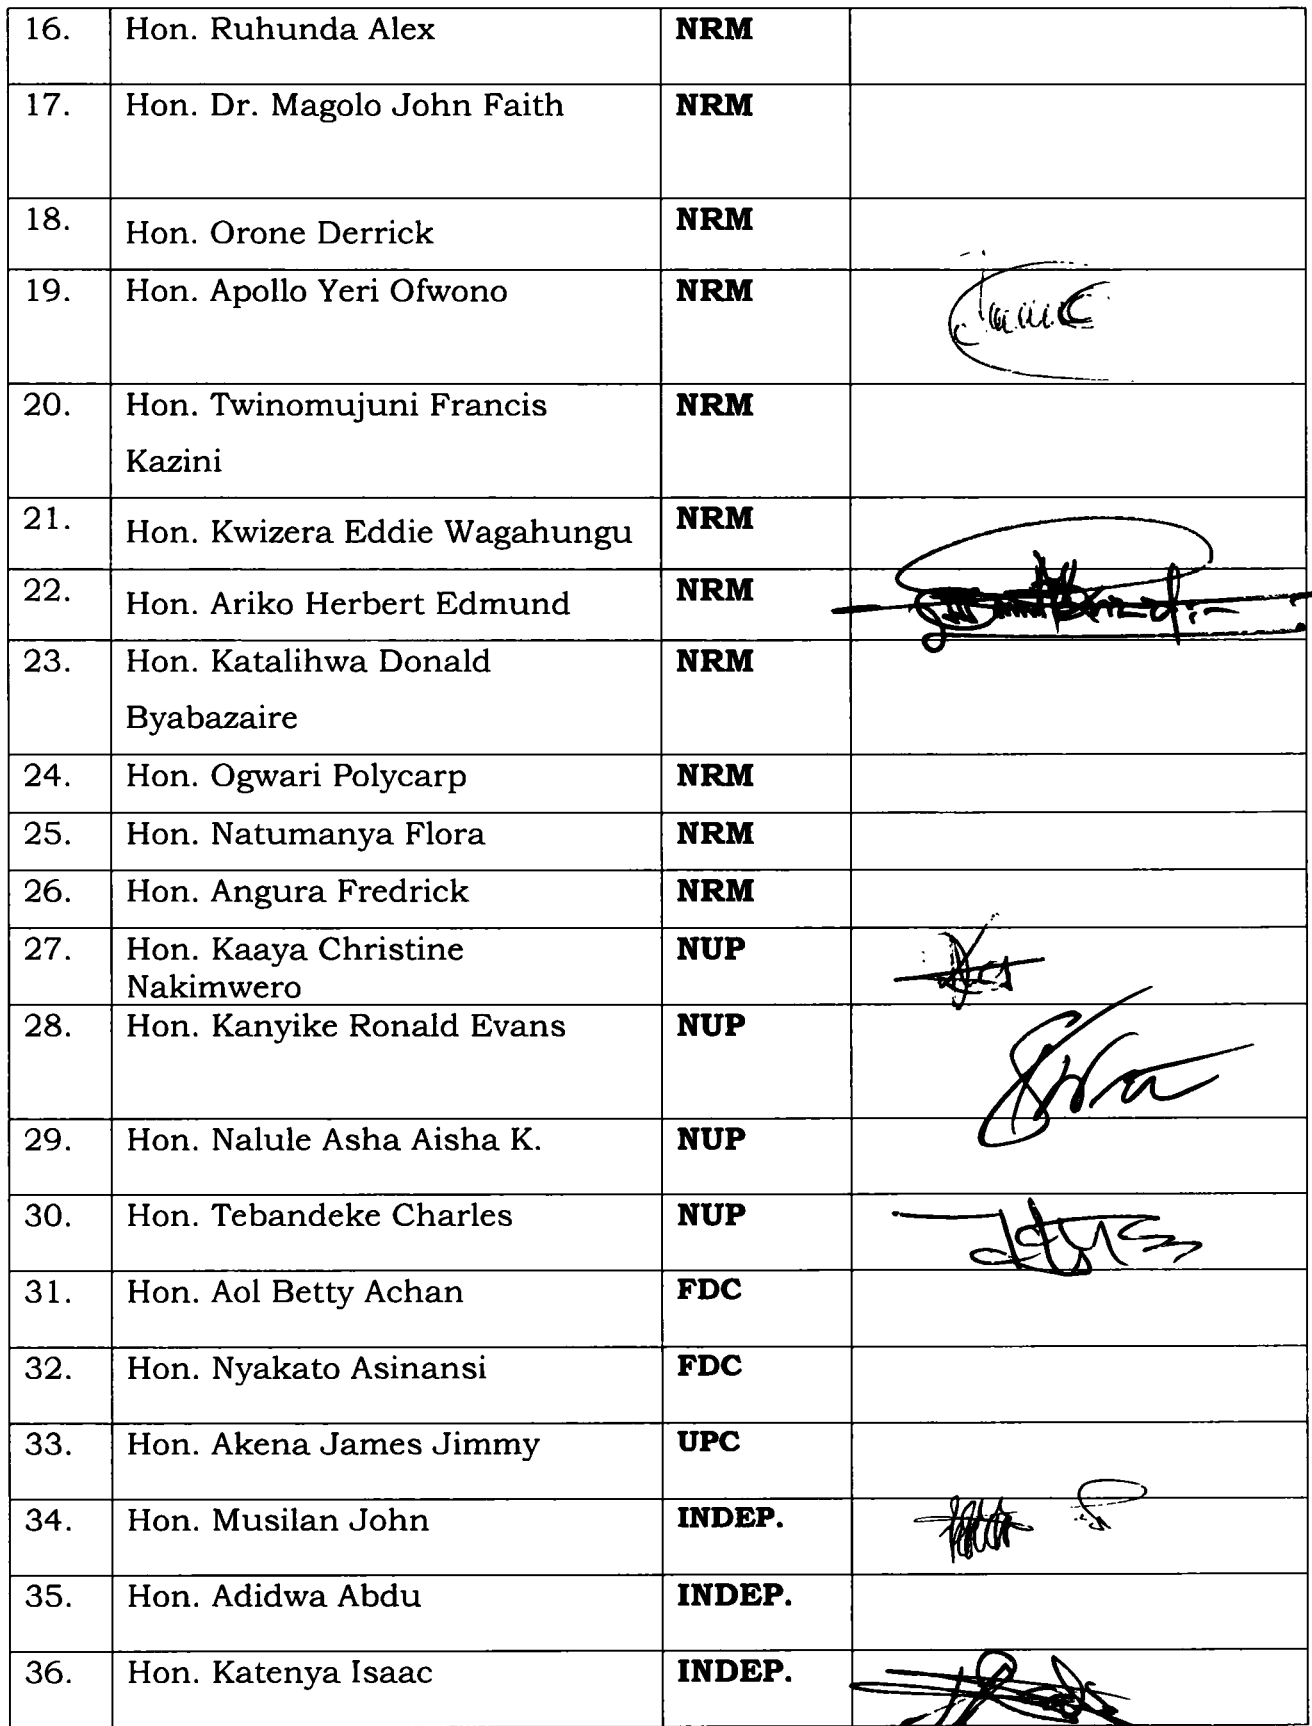 16. Hon. Ruhunda Alex NRM
17. Hon. Dr. Magolo John Faith NRM
18. Hon. Orone Derrick NRM
19. Hon. Apollo Yeri Ofwono NRM
20. Hon. Twinomujuni Francis NRM
Kazini
21. Hon. Kwizera Eddie Wagahungu NRM
22. Hon. Ariko Herbert Edmund NRM
23. Hon. Katalihwa Donald NRM
Byabazaire
24. Hon. Ogwari Polycarp NRM
25. Hon. Natumanya Flora NRM
26. Hon. Angura Fredrick NRM
27. Hon. Kaaya Christine NUP
Nakimwero
28. Hon. Kanyike Ronald Evans NUP
29. Hon. Nalule Asha Aisha K. NUP
30. Hon. Tebandeke Charles NUP
31. Hon. Aol Betty Achan FDC
32. Hon. Nyakato Asinansi FDC
33. Hon. Akena James Jimmy UPC
34. Hon. Musilan John INDEP.
35. Hon. Adidwa Abdu INDEP.
36. Hon. Katenya Isaac INDEP.